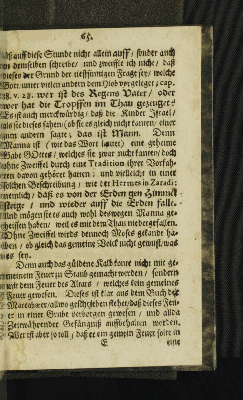 65.
auff diese Stunde nicht allein auff / sonder auch
in demselben schreibe / und zweiffle ich nicht / daß
dieses der Grund der tieffsinnigen Frage sey / welche
Gott unter vielen andern dem Hiob vorgeleget / cap.
38. v. 28. wer ist des Regens Vater / oder
wer hat die Tropffen im Thau gezeuget?
Es ist auch merckwürdig / daß die Kinder Israel /
als sie dieses sahen / (ob sie es gleich nicht kanten / einer
zum andern sagte; das ist Mann. Denn
Manna ist (wie das Wort lautet) eine geheime
Gabe Gottes / welches sie zwar nicht kanten / doch
ohne Zweiffel durch eine Tradition ihrer Vorfah-
ren davon gehöret hatten; und vielleicht in einer
solchen Beschreibung / wie der Hermes in
nemlich / daß es von der Erden gen Himmel
steige / und wieder auff die Erden falle.
Und mögen sie es auch wohl deswegen Manna ge-
heissen haben / weil es mit dem Thau niedergefallen.
Ohne Zweiffel wirds dennoch Moses gekannt ha-
ben / ob gleich das gemeine Volck nicht gewust / was
es sey.
Denn auch das güldene Kalb konte nicht mit ge-
meinem Feuer zu Staub gemacht werden / sondern
mit dem Feuer des Altars / welches kein gemeines
Feuer gewesen. Dieses ist klar aus dem Buch der
Maccabæer / allwo geschrieben stehet / daß dieses Feu-
er in einer Grube verborgen gewesen / und allda
Zeit währender Gefängnuß auffbehalten worden.
Wer ist aber so toll / daß er ein gemein Feuer solte in
E eine